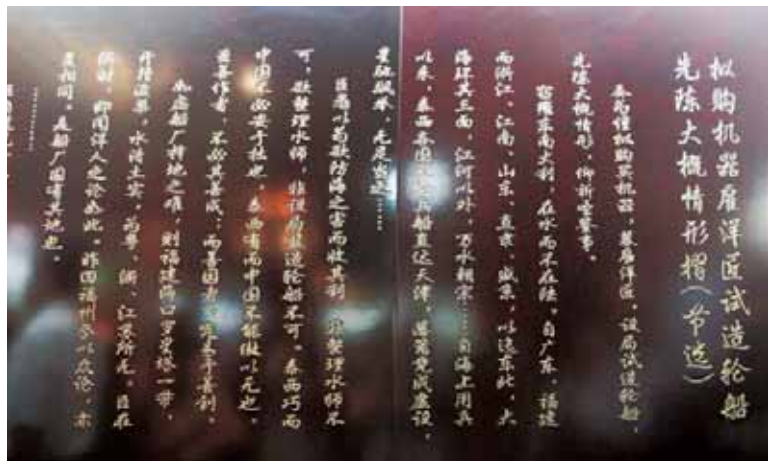 拟购机器雇洋匠试造轮船
先陈大概情形摺（节选）
奏为谨拟购买机器，募雇洋匠，设局试造轮船，
先陈大概情形，仰祈圣鉴事。
窃维东南大利，在水而不在陆。自广东、福建
而浙江、江南、山东、直隶、盛京，以迄东北，大
海环其三面，江河以外，万水朝宗……自海上用兵
以来，泰西各国火轮兵船直达天津，藩篱竟成虚设，
星驰飙举，无足当之……
臣愚以为欲防海之害而收其利，非整理水师不
可，欲整理水师，非设局监造轮船不可。泰西巧而
中国不必安于拙也，泰西有而中国不能傲以无也。
虽善作者，不必其善成，而善因者，究易于善创。
如虑船厂择地之难，则福建海口罗星塔一带，
开槽浚渠，水清土实，为粤、浙、江苏所无。臣在
浙时，即闻洋人之论如此。昨回福州参以众论，亦
复相同。是船厂固有其地也。
……………